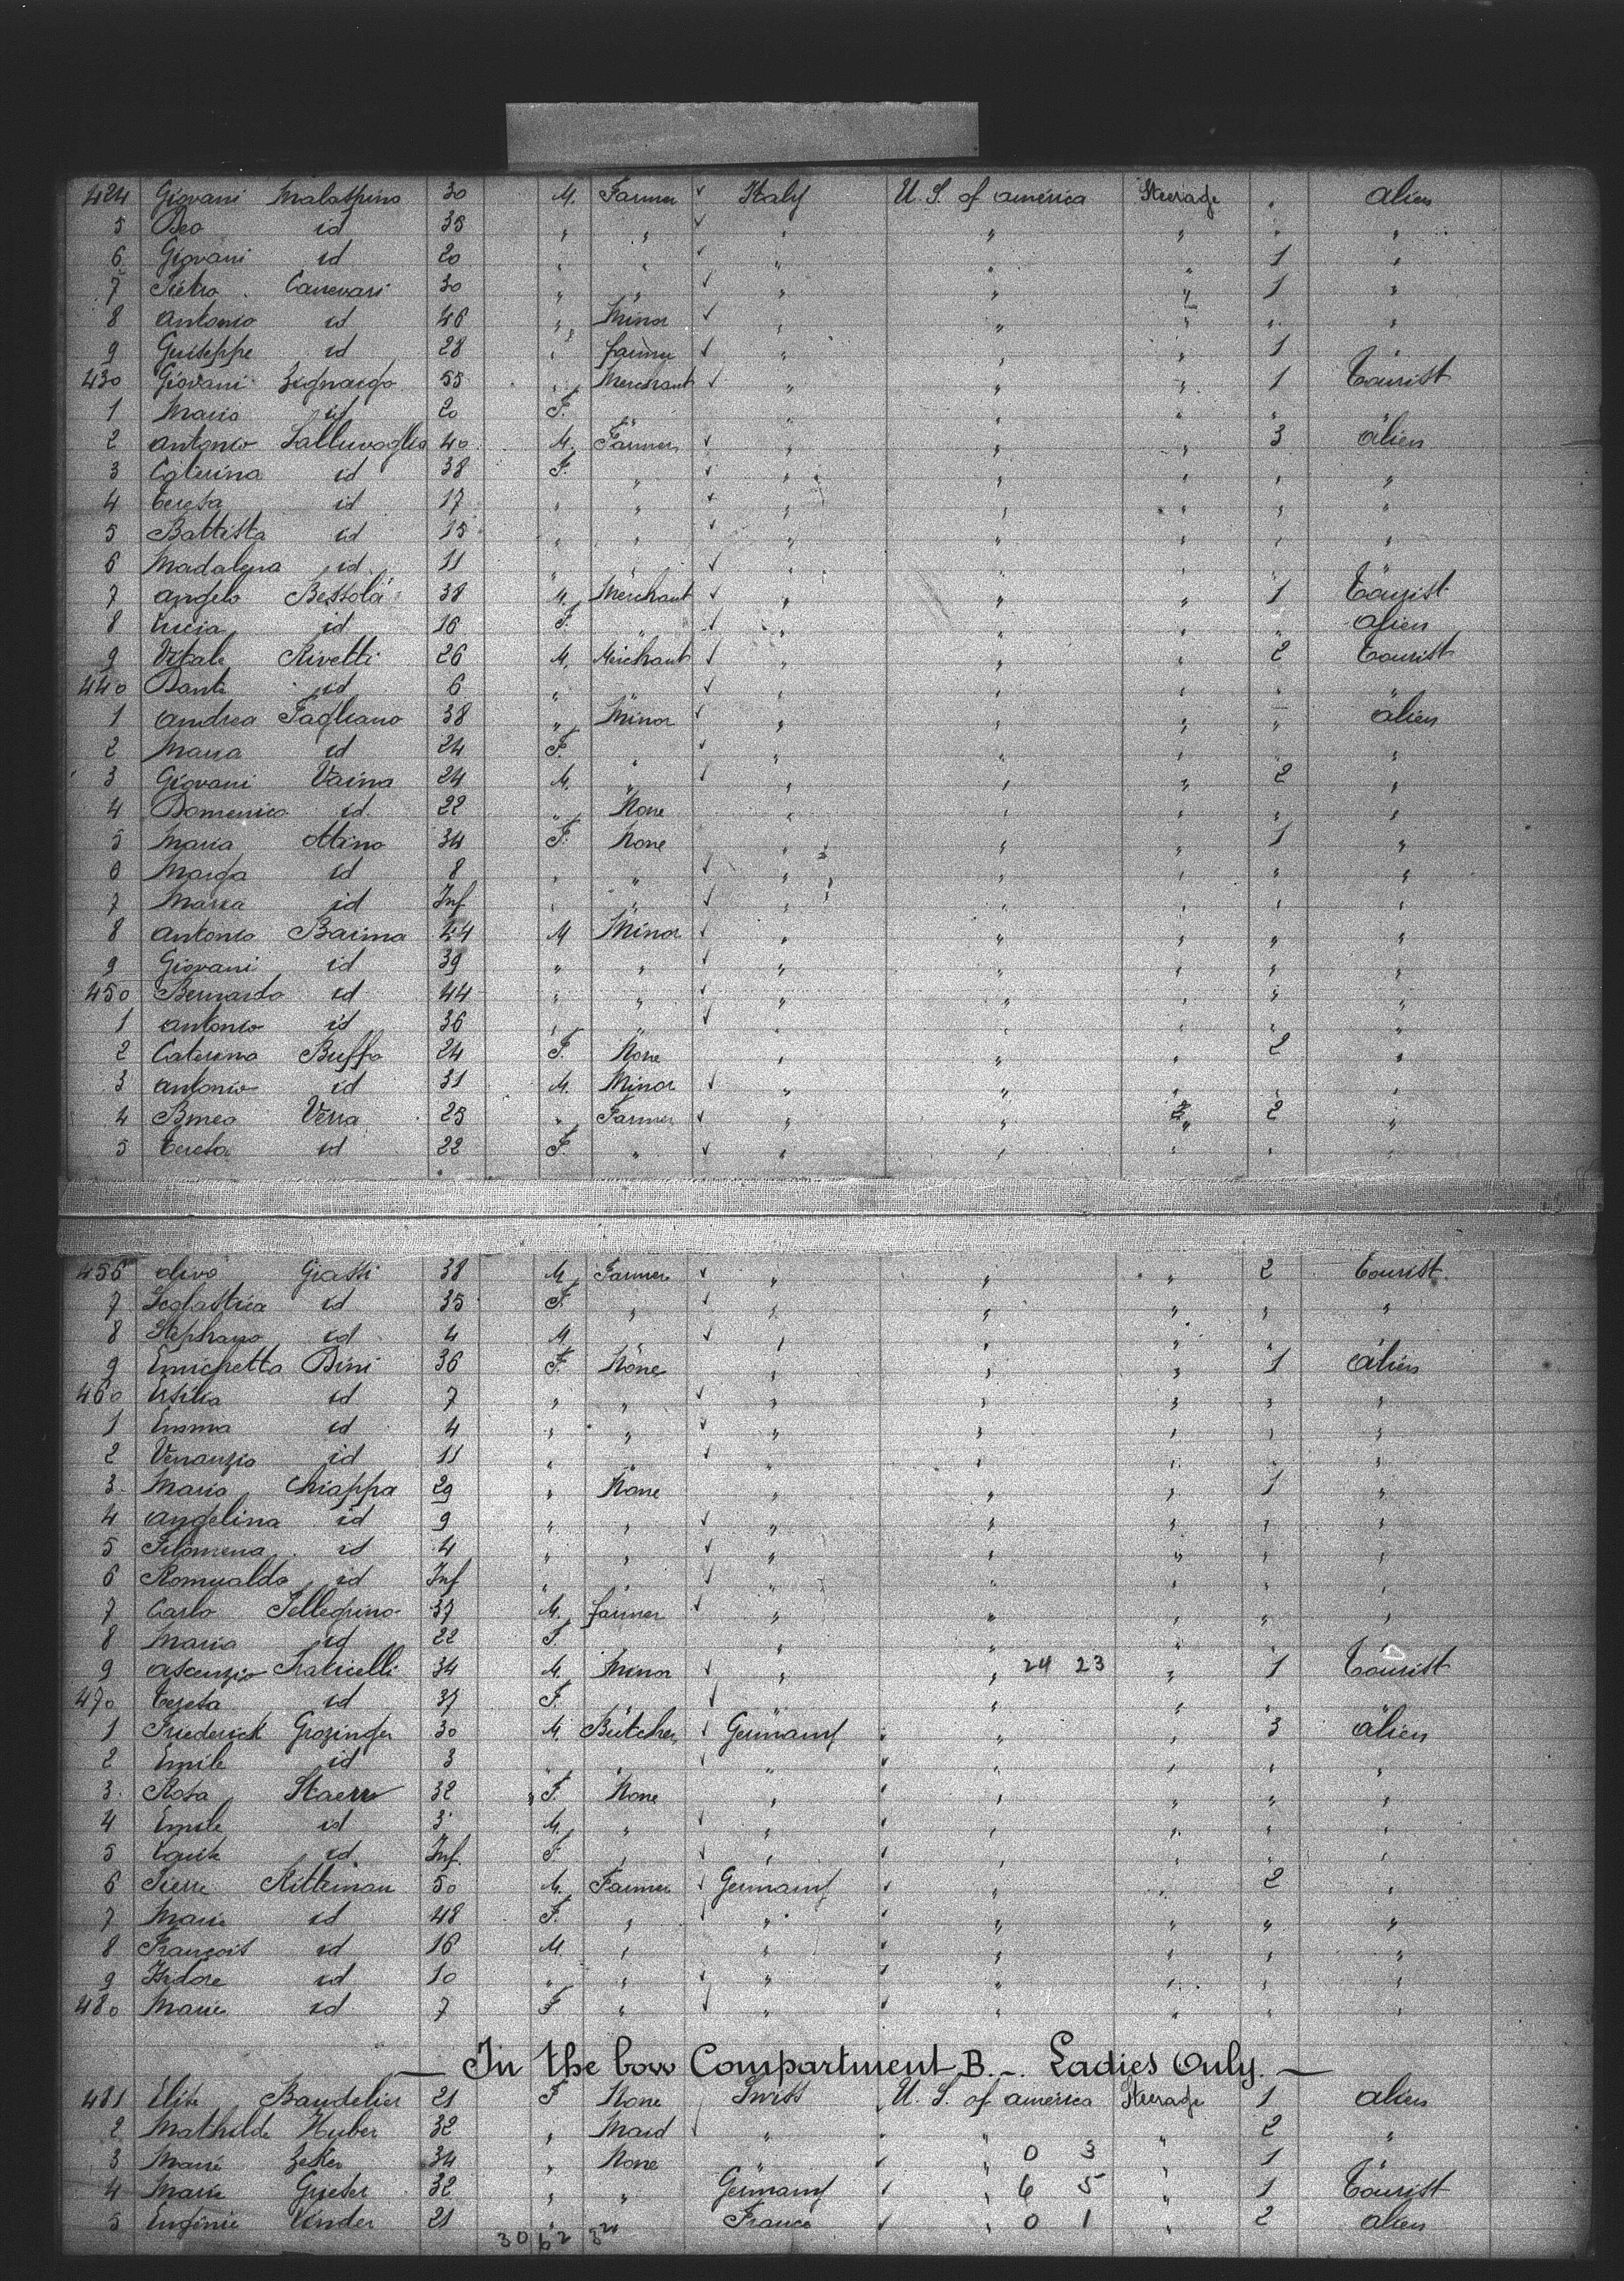 424 Giovani Malaspino 30 M. Farmer ✓ Italy U. S. of america Steerage " alien
5 Deo id 35 " " ✓ " " " " "
6 Giovani id 20 " " ✓ " " " 1 "
7 Pietro Canevari 30 " " ✓ " " " 1 "
8 antonio id 46 " Minor ✓ " " " " "
9 Guiseppe id 28 " farmer ✓ " " " 1 "
430 Giovani Zignaigo 55 " Merchant ✓ " " " 1 Tourist
1 Maria id 20 F. " " " " " "
2 antonio Salluvaglia 40 M. Farmer ✓ " " " 3 alien
3 Caterina id 38 F. " ✓ " " " " "
4 Teresa id 17 " " ✓ " " " " "
5 Battista id 15 " " ✓ " " " " "
6 Madalena id 11 " " ✓ " " " " "
7 angelo Bessola 38 M. Merchant ✓ " " " 1 Tourist
8 Lucia id 16 F. " ✓ " " " " alien
9 Vitale Rivetti 26 M. Merchant ✓ " " " 2 Tourist
440 Dante id 6 " " ✓ " " " " "
1 andrea Fagliano 38 " Minor ✓ " " " " alien
2 Maria id 24 F. " ✓ " " " " "
3 Giovani Vaina 24 M. " ✓ " " " 2 "
4 Domenico id 22 " None " " " " "
5 Maria Atino 34 F. None " " " 1 "
6 Marga id 8 " " ✓ " " " " "
7 Maria id Inf " " ✓ " " " " "
8 antonio Barina 44 M Minor ✓ " " " " "
9 Giovani id 39 " " ✓ " " " " "
450 Bernardo id 44 " " ✓ " " " " "
1 antonio id 36 " " ✓ " " " " "
2 Caterina Buffa 24 F. None " " " 2 "
3 antonio id 31 M. Minor ✓ " " " " "
4 Bmeo Verra 25 " Farmer ✓ " " " 2 "
5 Teresa id 22 F. " ✓ " " " " "
456 olivo Grassi 38 M. Farmer ✓ " " " 2 Tourist
7 Scolastica id 35 F. " ✓ " " " " "
8 Stephano id 4 M ✓ " " " "
9 Enrichetta Dini 36 F. None " " " 1 alien
460 Ersilia id 7 " " ✓ " " " " "
1 Emma id 4 " " ✓ " " " " "
2 Venanzio id 11 " " ✓ " " " " "
3 Maria Chiappa 29 " None " " " 1 "
4 angelina id 9 " " ✓ " " " " "
5 Filomena id 4 " " ✓ " " " " "
6 Romualdo id Inf " " ✓ " " " " "
7 Carlo Pellegrino 37 M. farmer ✓ " " " " "
8 Maria id 22 F. " " "
9 ascenzio Fraticelli 34 M. Minor ✓ " " 24 23 " 1 Tourist
470 Teresa id 37 F. ✓ " " " " "
1 Friederick Grozinger 30 M. Butcher ✓ Germany ✓ " " 3 alien
2 Emile id 3 " " ✓ " ✓ " " " "
3 Rosa Staerr 32 F. None " ✓ " " " "
4 Emile id 3 M. " ✓ " ✓ " " " "
5 Louise id Inf. F. " ✓ " ✓ " " " "
6 Pierre Kitteman 50 M. Farmer ✓ Germany ✓ " " 2 "
7 Marie id 48 F. " ✓ " ✓ " " " "
8 François id 16 M. " " ✓ " " " "
9 Isidore id 10 " " ✓ " ✓ " " " "
480 Marie id 7 F " ✓ " ✓ " " " "
— In the bow Compartment B. — Ladies Only. —
481 Elise Baudelier 21 F None Swiss U. S. of america Steerage 1 alien
2 Mathilde Huber 32 " Maid ✓ " " " 2 "
3 Marie Zesker 34 " None " ✓ " 0 3 1 "
4 Marie Grieter 32 " " Germany ✓ " 6 5 " 1 Tourist
5 Eugénie Vinder 21 " France ✓ " 0 1 " 2 alien
30 62